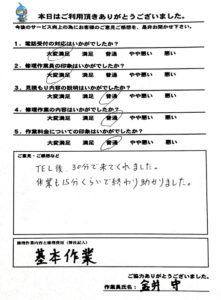 本日はご利用頂きありがとうございました。
今後のサービス向上の為にお客様のご意見ご感想を、是非お聞かせ下さい。
1，電話受付の対応はいかがでしたか？
大変満足 満足 普通 やや悪い 悪い
2，修理作業員の印象はいかがでしたか？
大変満足 満足 普通 やや悪い 悪い
3，見積もり内容の説明はいかがでしたか？
大変満足 満足 普通 やや悪い 悪い
4，修理作業の内容はいかがでしたか？
大変満足 満足 普通 やや悪い 悪い
5，作業料金についての印象はいかがでしたか？
大変満足 満足 普通 やや悪い 悪い
ご意見・ご感想など
TEL後、30分で来てくれました。
作業も15分くらいで終わり助かりました。
修理作業内容と修理費用（弊社記入）
基本作業
ご協力ありがとうございました。
作業員氏名：金井 守